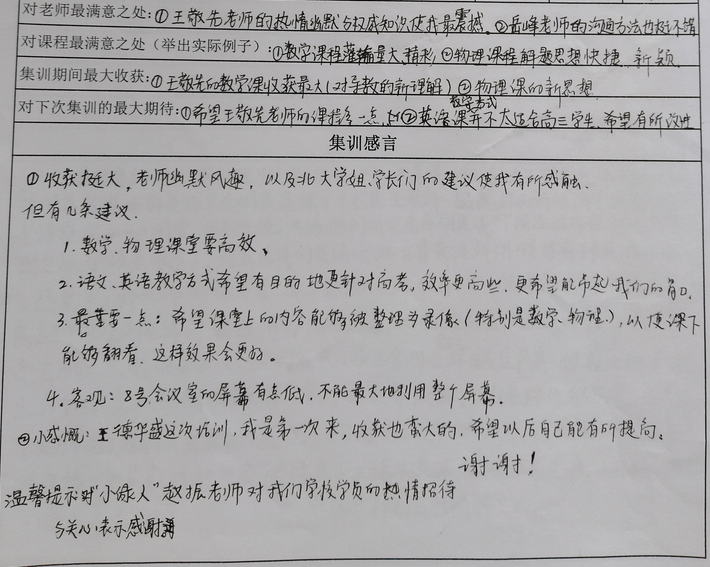 对老师最满意之处:①王敬先老师的热情幽默与权威知识使我最震撼。②岳峰老师的沟通方法也挺不错
对课程最满意之处(举出实际例子):①数学课程灌输量大、精彩 ②物理课程解题思想快捷、新颖
集训期间最大收获:①王敬先的数学课收获最大(对导数的新理解)②物理课的新思想
教学方式
对下次集训的最大期待:①希望王敬先老师的课程多一点 ②英语课并不大适合高三学生,希望有所改进
集训感言
①收获挺大,老师幽默风趣,以及北大学姐、学长们的建议使我有所感触.
但有几条建议.
1.数学、物理课堂要高效。
2.语文、英语教学方式希望有目的地更针对高考,效率更高些.更希望能带起我们的
3.最重要一点:希望课堂上的内容能够被整理为录像(特别是数学、物理),以便课下
能够翻看.这样效果会更好。
4.客观:8号会议室的屏幕有点低,不能最大地利用整个屏幕.
②小感慨:德华盛这次培训,我是第一次来,收获也蛮大的,希望以后自己能有所提高。
谢谢!
温馨提示:对"小绿人"赵振老师对我们学校学员的热情招待
与关心表示感谢